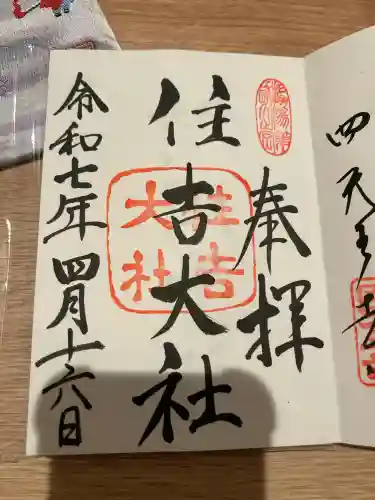 四天王寺
奉拝
住吉大社
住吉
大社
令和七年四月十六日